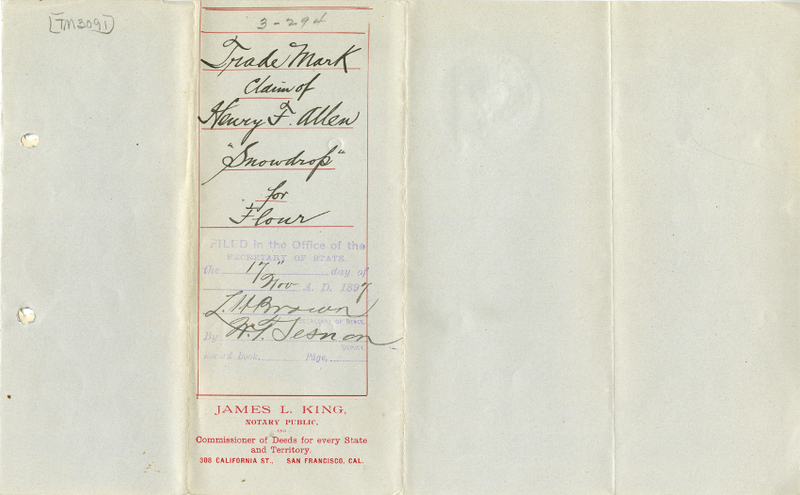 TM3091
3-294
Trade Mark
Claim of
Henry F. Allen
"Snowdrop"
for
Flour
FILED in the Office of the
SECRETARY OF STATE
the 17" day of
Nov A. D. 1897
L. H. Brown
SECRETARY OF STATE
By W. T. Sesnon
DEPUTY
Record book, Page,
JAMES L. KING,
NOTARY PUBLIC,
AND
Commissioner of Deeds for every State
and Territory.
308 CALIFORNIA ST., SAN FRANCISCO, CAL.